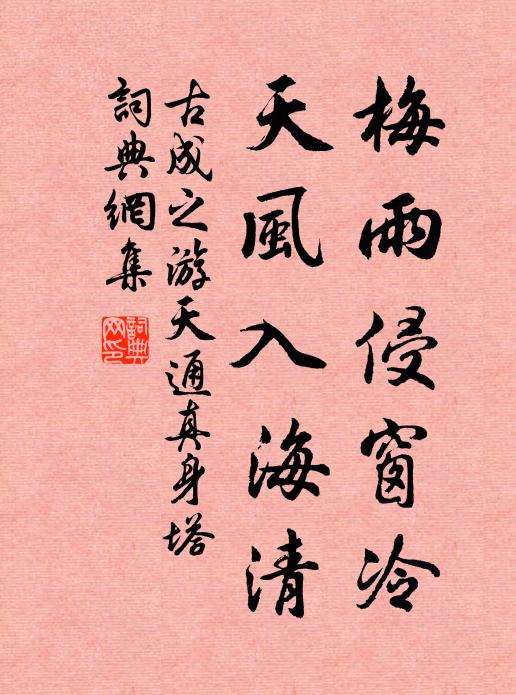 梅雨侵窗冷
天風入海清
古成之游天通真身塔
詞典網集
詞典
网印